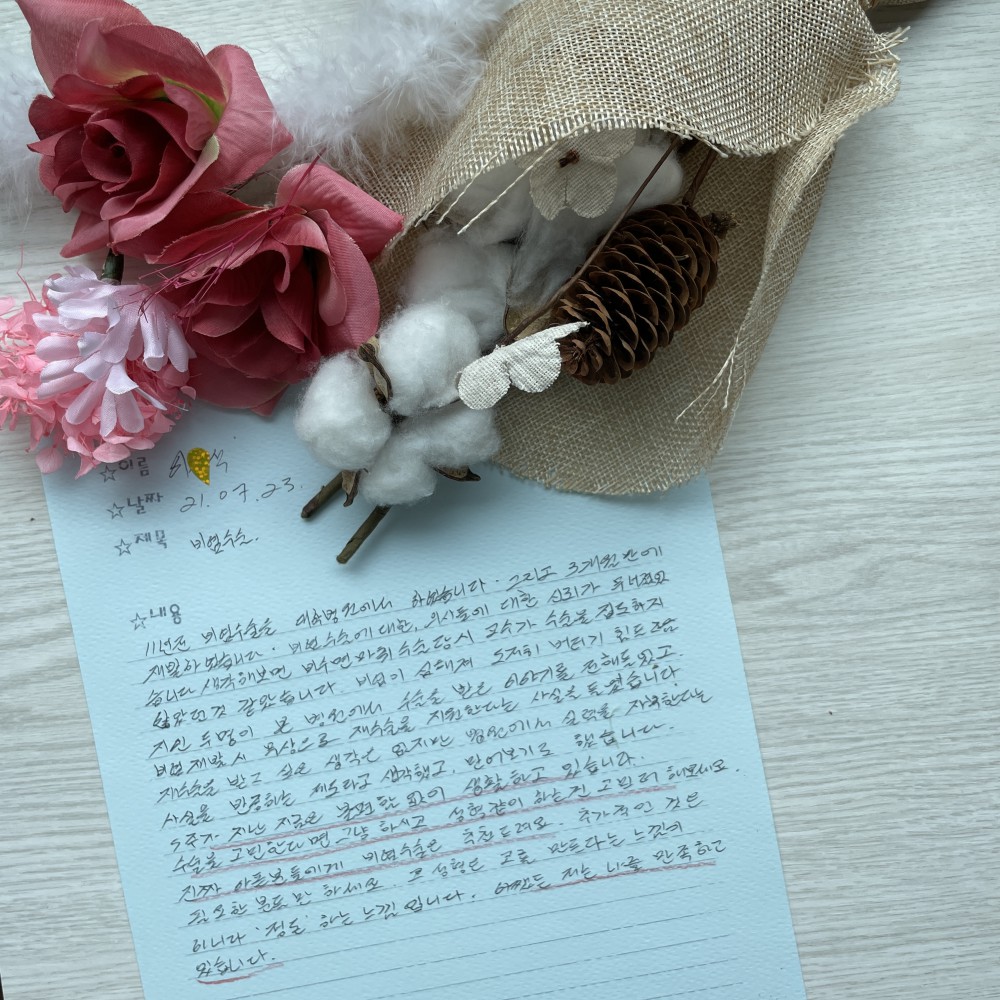 ☆이름 최 식
☆날짜 21.07.23.
☆제목 비염수술.
☆내용
11년전 비염수술을 대학병원에서 하였습니다. 그리고 3개월만에
재발하였습니다. 비염수술에 대한, 의사들에 대한 신뢰가 무너졌었
습니다 생각해보면 비수면마취 수술당시 교수가 수술을 집도하지
않았던것 같았습니다. 비염이 심해져 도저히 버티기 힘드 
지인 두명이 본 병원에서 수술을 받은 이야기를 전해들었고.
비염재발 시 무상으로 재수술을 지원한다는 사실을 듣었습니다
재수술을 받고 싶은 생각은 없지만 병원에서 실력을 자 한다는
사실을 반증하는 제도라고 생각했고, 믿어보기로 했습니다.
5주가 지난 지금은 불편함 없이 생활하고 있습니다.
수술을 고민한다면 그냥 하시고 성형같이 하는건 고민 더 해보세요.
진짜 아픈분들에게 비염수술은 추천드려요. 추가적인 것은
필요한 분들만 하세요. 코성형은 코를 만드다는 느낌이
아니라 '정돈' 하는 느낌입니다. 어쨌든 저는 나름 만족하고
있습니다.